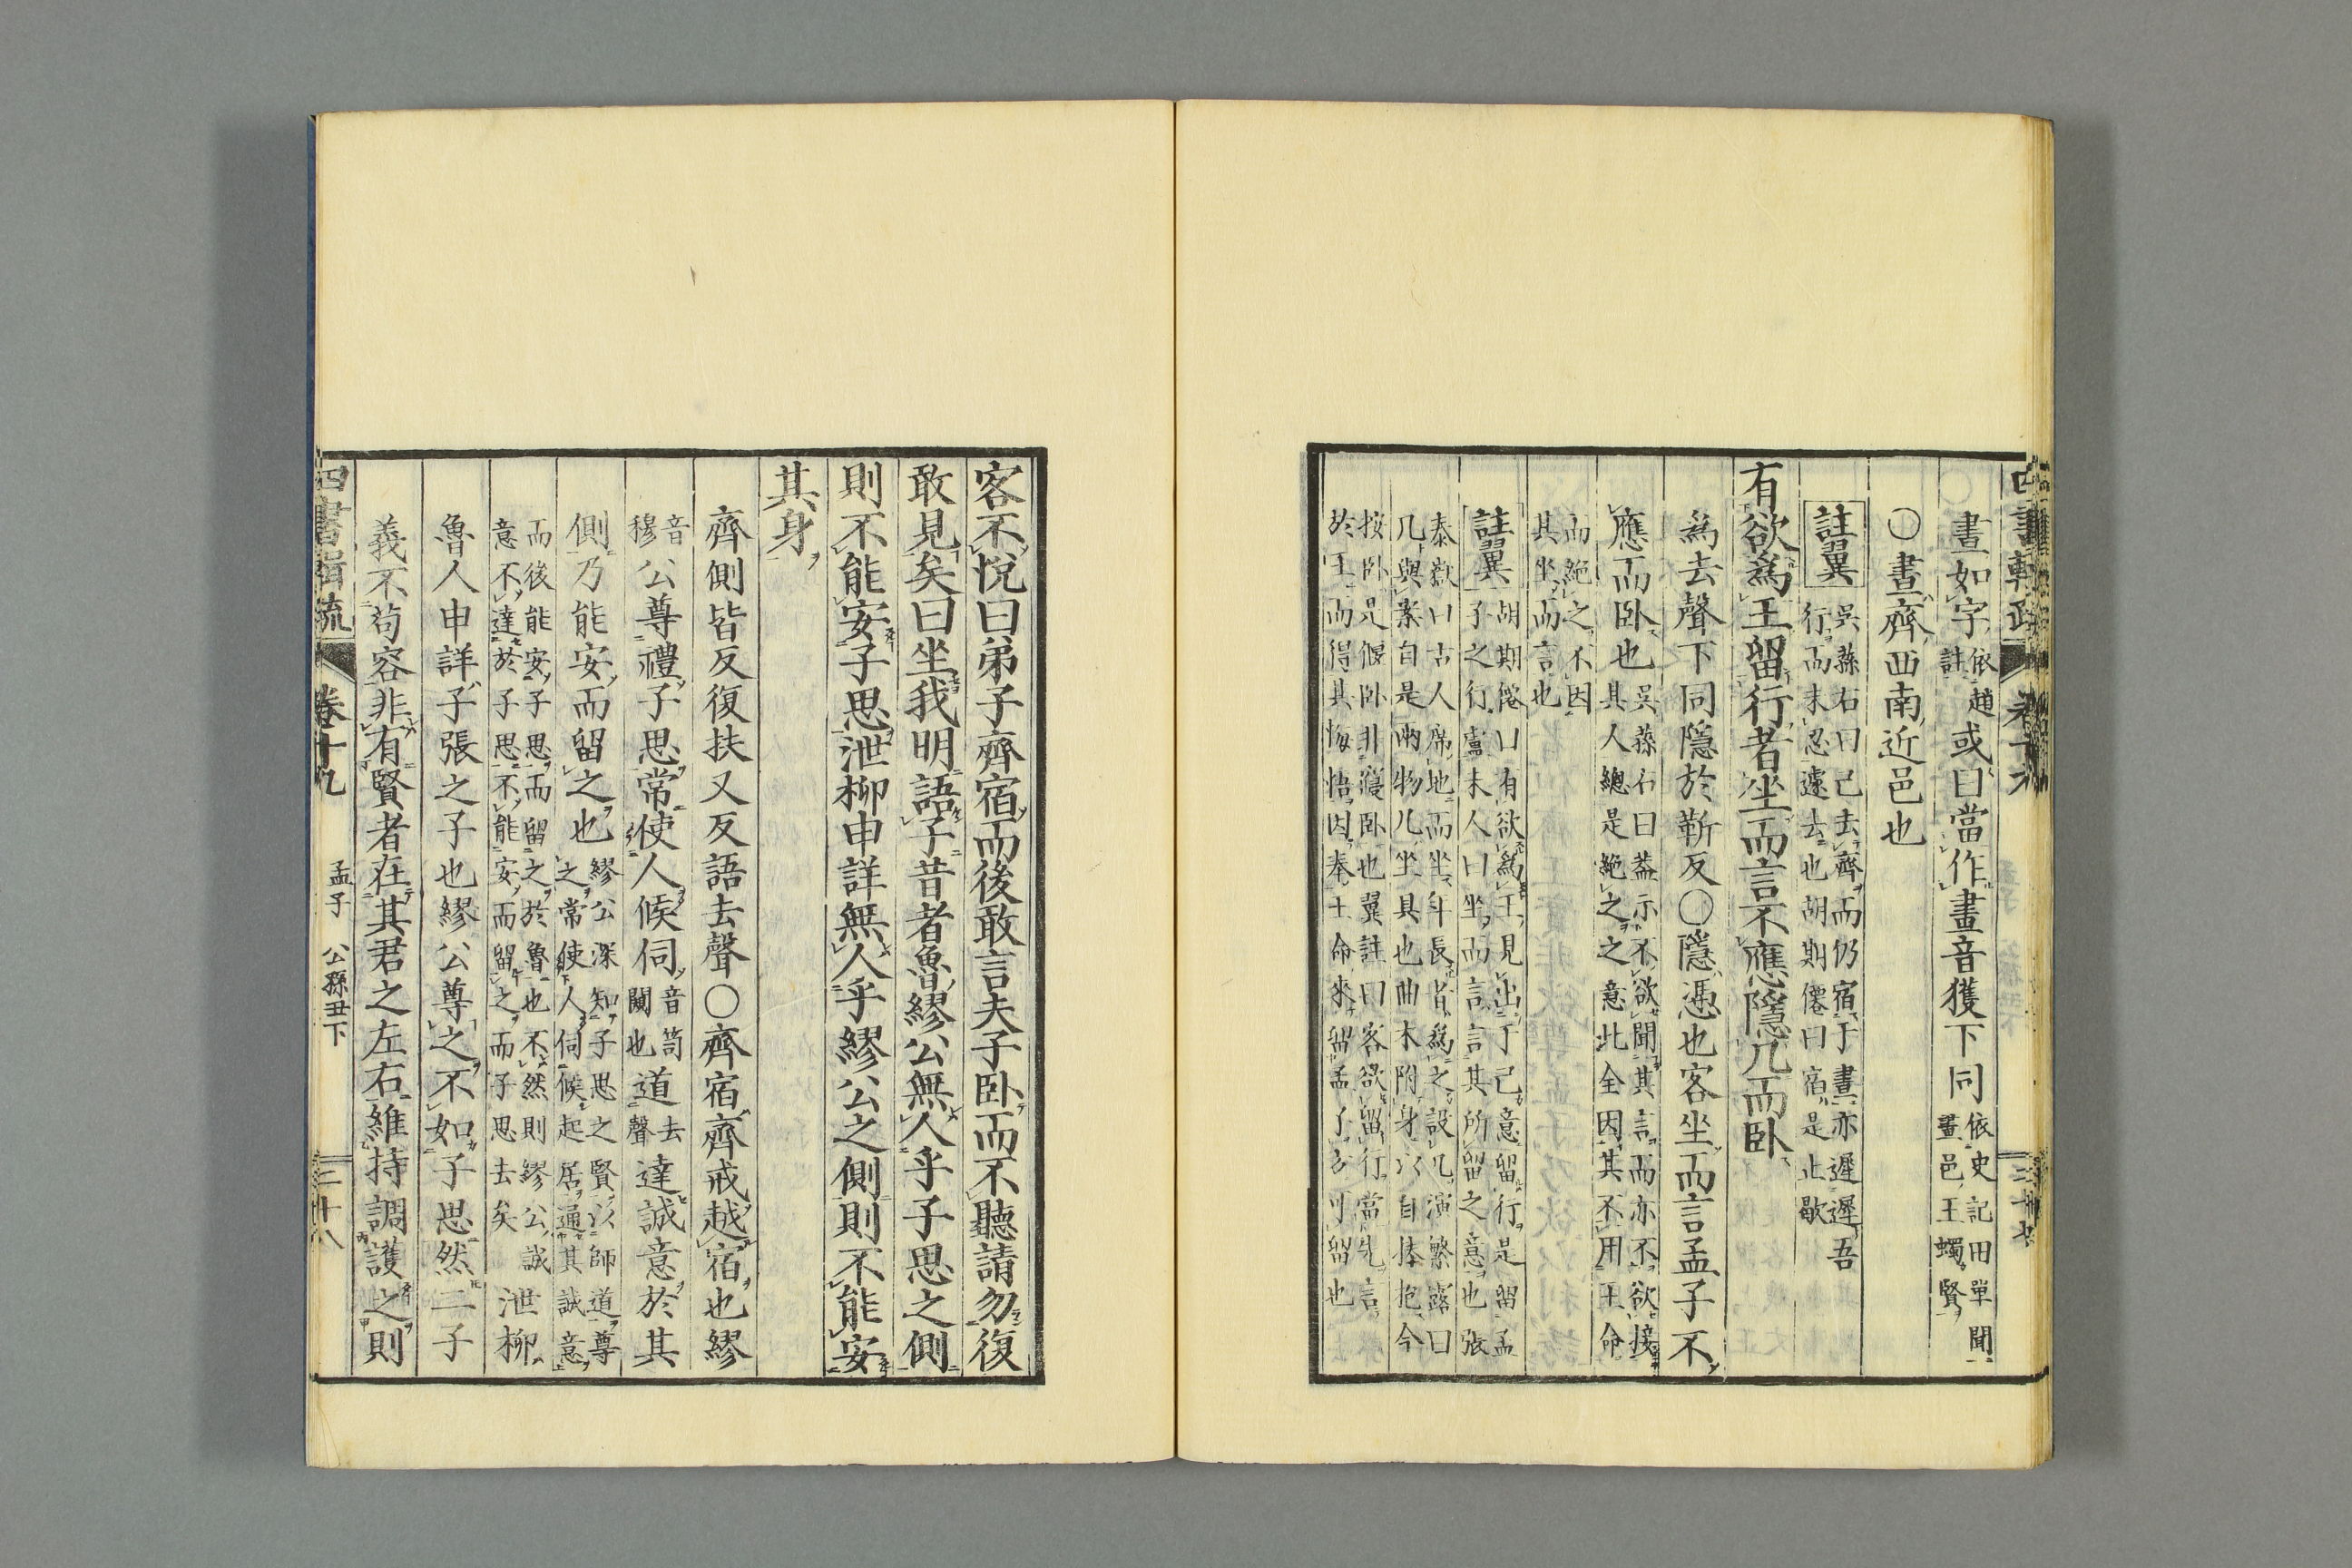 晝如字依趙註或曰當作畫音獲下同依史記田單聞畫邑王蠋賢
○晝齊西南近邑也
註翼吳蓀右曰已去齊而仍宿于晝亦遲遲吾行而未忍遽去也胡期僊曰宿是止歇
有欲爲王留行者坐而言不應隱几而卧
爲去聲下同隱於靳反○隱憑也客坐而言孟子不
應而卧也吳蓀右曰蓋示不欲聞其言而亦不欲接其人總是絶之之意此全因其不用王命
而絶之不因其坐而言也
註翼胡期僊曰有欲爲王見出于己意留行是留孟子之行盧未人曰坐而言言其所留之意也張
泰嶽曰古人席地而坐年長者爲之設几演繁露曰几與案自是兩物几坐具也曲木附身以自捧抱今
按卧是偃卧非寢卧也翼註曰客欲留行當先言於王而得其悔悟因奉王命來留孟子方可留也
客不悅曰弟子齊宿而後敢言夫子卧而不聽請勿復
敢見矣曰坐我明語子昔者魯繆公無人乎子思之側
則不能安子思泄柳申詳無人乎繆公之側則不能安
其身
齊側皆反復扶又反語去聲○齊宿齊戒越宿也繆
音穆公尊禮子思常使人候伺音笥闚也道去聲達誠意於其
側乃能安而留之也繆公深知子思之賢以師道尊之常使人伺候起居通其誠意
而後能安子思而留之於魯也不然則繆公誠意不達於子思不能安而留之而子思去矣泄柳
魯人申詳子張之子也繆公尊之不如子思然二子
義不苟容非有賢者在其君之左右維持調護之則
四書輯疏 卷十九 孟子 公孫丑下 二十八